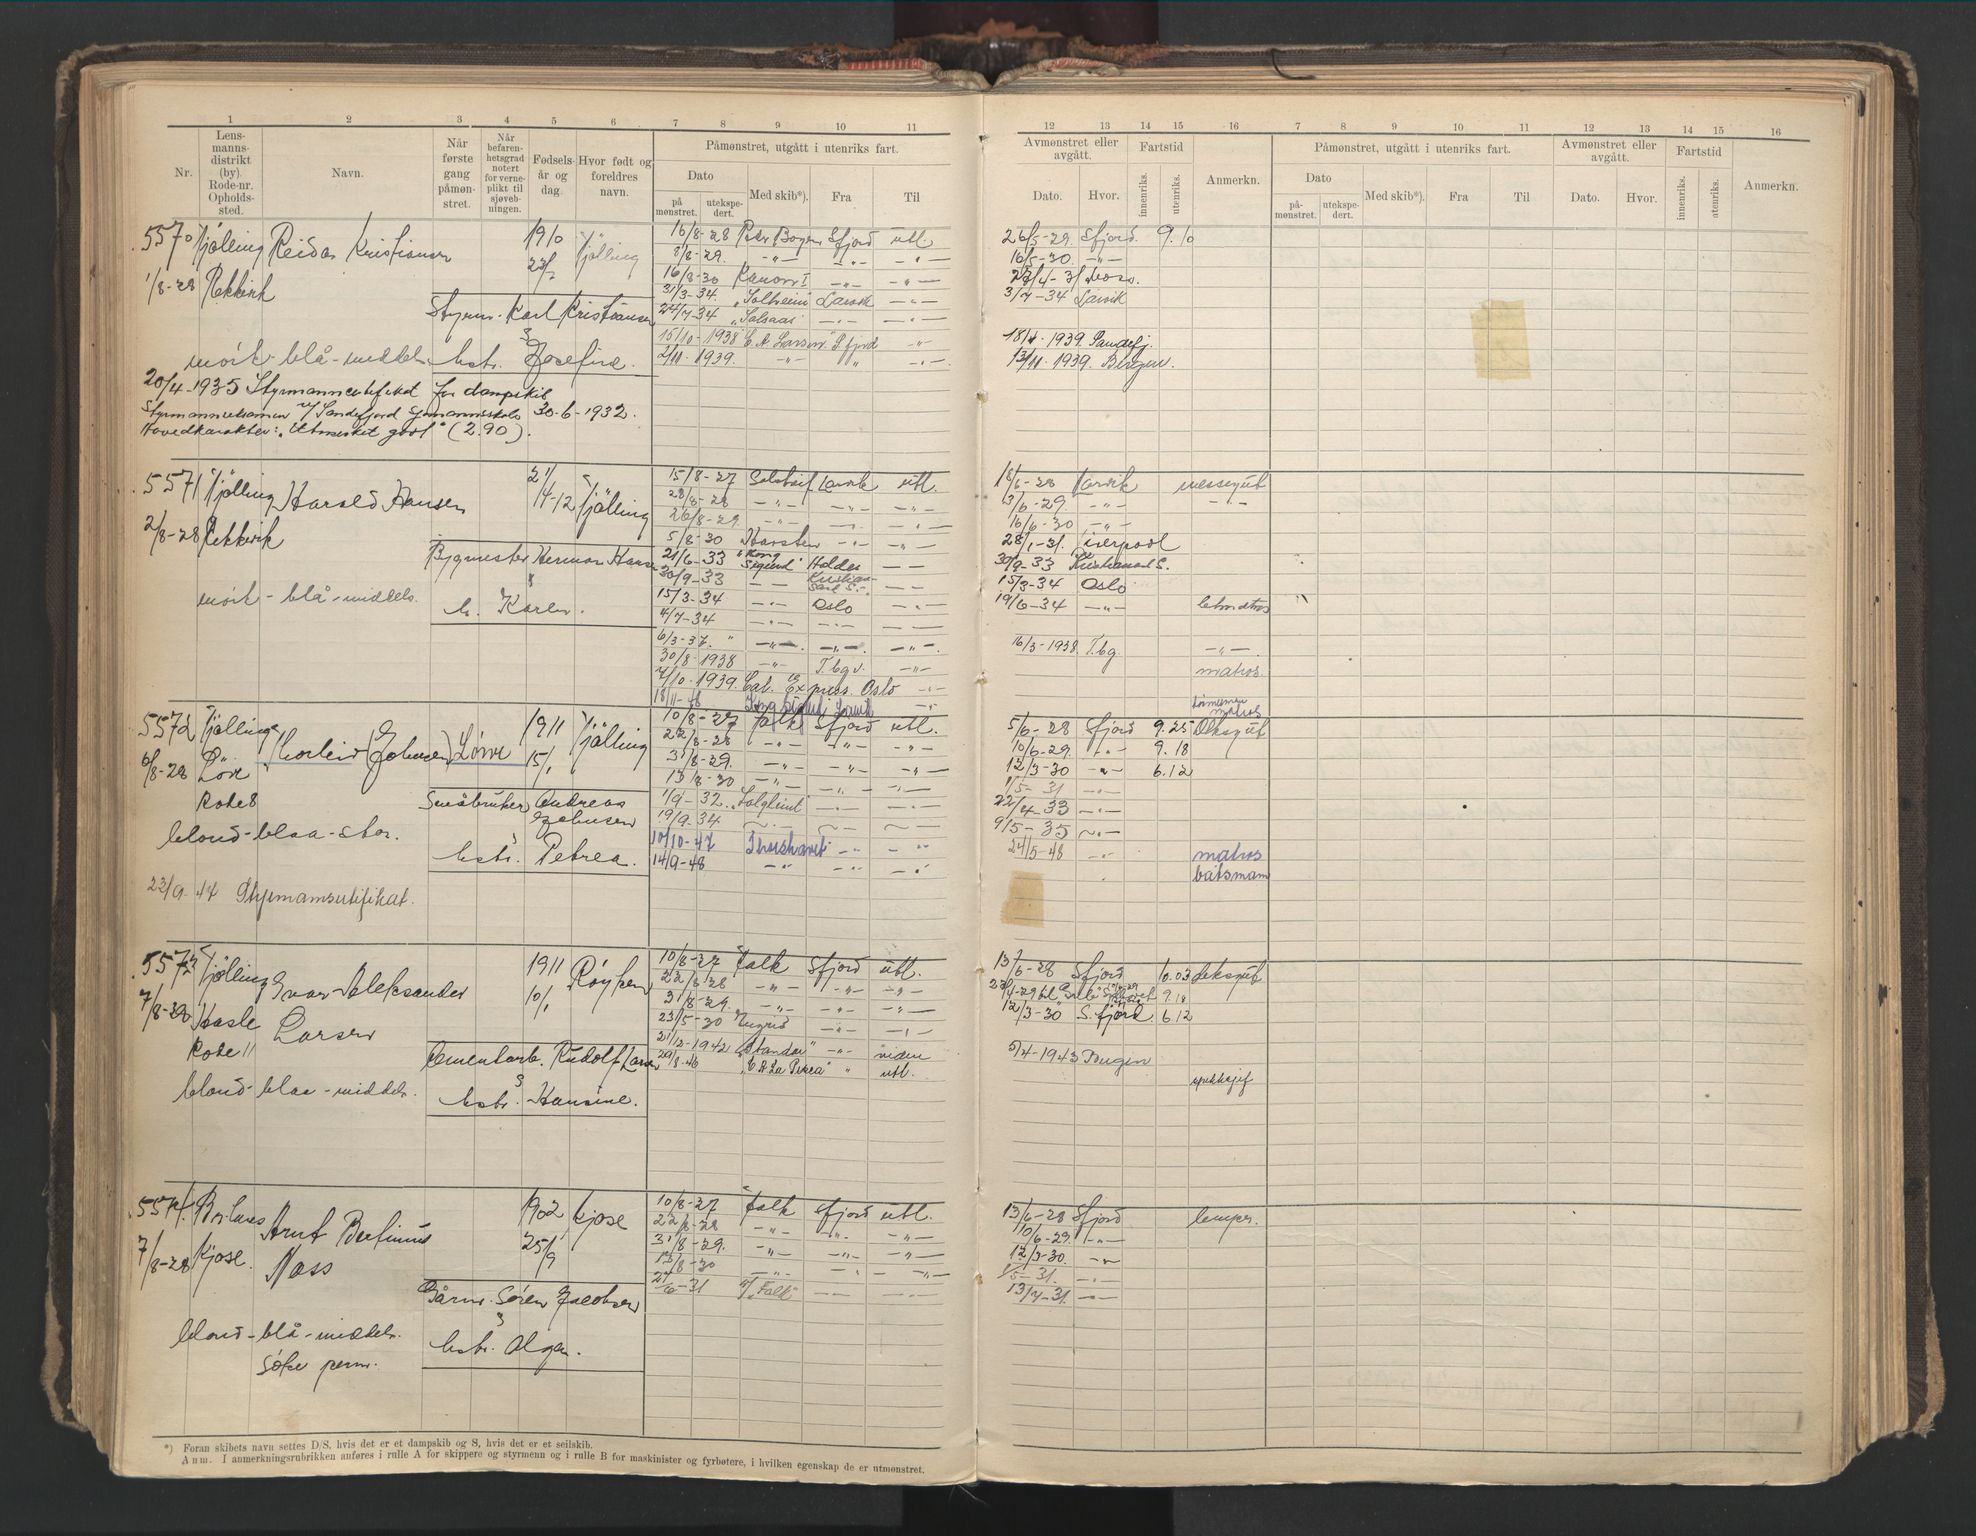 1 2 3 4 5 6 7 8 9 10 11
Nr.
Lens-
manns-
distrikt
(by).
Rode-nr.
Opholds-
sted.
Navn.
Når
første
gang
påmøn-
stret.
Når
befaren-
hetsgrad
notert
for verne-
plikt til
sjøveb-
ningen.
Fødsels-
år og
dag.
Hvor født og
foreldres
navn.
Påmønstret, utgått i utenriks fart.
Dato
på
mønstret.
utekspe-
dert.
Med skib*).
Fra
Til
5570 Tjølling Reidar Kristiansen 1910 Tjølling
1/8-28 Rekkevik
Styrm. Karl Kristiansen
mørk - blå - middels hstr. Josefine.
20/4-1935 Styrmanncertifikat for dampskib
Styrmannseksamen v/ Sandefjord sjømannsskole 30-6-1932.
Hovedkarakter: "Utmerket godt" (2.90).
16/8-28 Peder Bogen Sfjord utl
1/8-29. -"- -"- -"-
16/8-30 Kanon I -"- -"-
31/3-34. "Solheim" Larvik -"-
24/7-34 "Solsaas" -"- -"-
15/10-1938 C. A. Larsen S. fjord -"-
2/11-1939. -"- "" -"-
5571 Tjølling Harald Hansen 21/4-12 Tjølling
2/8-28 Rekkevik
Bygmester Herman Hansen
mørk - blå - middels. h. Karen.
15/8-27 Solstreif Larvik utl.
28/8-28 -"- -"- -"-
26/8-29. -"- -"- -"-
5/8-30 Thorsten -"- -"-
21/6-33 "Kong Sigurd" Hodder - -
30/9-33 - - Kristian-
sand S. -"-
15/3-34 -"- Oslo -"-
4/7-34 -"- -"- -"-
6/3-37. " -"-. -"-. -"-.
30/8-1938 -"- T.bg v. -"-
7/10-1939. Cab. Express. Oslo -"-
18/11-48
5572 Tjølling Thorleiv (Johnsen) Løwe 1911 Tjølling
6/8-28 Ö. Löve 15/1
Rode 8 Småbruker Andreas
Johnsen
blond - blaa - stor.
hstr. Petrea.
23/9-44 Styrmannsertifikat.
10/8-27 Falk Sfjord utl.
22/8-28 -"- -"- -"-
31/8-29. -"- -"- -"-
13/8-30 -"-
1/9-32. "Solglimt" -"- -"-
19/9-34 -"- -"- -"-
10/10-47 Thorshavet -"- -"-
14/9-48 -"- -"- -"-
5573 Tjølling Ivar Aleksander 1911 Røyken
7/8-28 Hasle Larsen 10/1
Rode 11
Cementarb. Rudolf Larsen
blond - blaa - middels. hstr. Hansine.
10/8-27 Falk Sfjord utl.
22/8-28 -"- -"- -"-
31/8-29. -"- -"- -"-
23/5-30 Ingrid -"- -"-
21/12-1942 "Stander" -"- viden
29/8-46 " " utl.
5574. Br.lanes Arnt Bertinius 1902 Kjose
7/8-28 Kjose. Næss 25/9
Gårm. Søren Jacobsen
blond - blå - middels. hstr. Olga.
søke perm.
10/8-27 Falk Sfjord utl.
22/8-28 -"- -"- -"-
31/8-29. -"- -"- -"-
13/8-30 -"- -"- -"-
27/6-31 s/ "Falk" - - - -
*) Foran skibets navn settes D/S, hvis det er et dampskib og S, hvis det er et seilskib.
Anm. I anmerkningsrubrikken anføres i rulle A for skippere og styrmenn og i rulle B for maskinister og fyrbøtere, i hvilken egenskap de er utmønstret.
12 13 14 15 16 7 8 9 10 11 12 13 14 15 16
Avmønstret eller
avgått.
Dato.
Hvor.
Fartstid
innenriks.
utenriks.
Anmerkn.
Påmønstret, utgått i utenriks fart.
Dato
på-
mønstret.
utekspe-
dert.
Med skib*).
Fra
Til
Avmønstret eller
avgått.
Dato.
Hvor.
Fartstid
innenriks.
utenriks.
Anmerkn.
26/5-29. Sfjord. 9.10
16/5-30. -"-
23/4-31 Moss.
3/7-34 Larvik
18/4-1939. Sandefj.
13/11-1939. Bergen.
18/6-28 Larvik messegut
13/6-29. -"- -"-
16/6-30 -"-
28/1-31. Liverpool
30/9-33 Kristiansand S.
15/3-34 Oslo
19/6-34 -"- letmatros
16/3-1938 T.bg. -"-
matros
matros
5/6-28 Sfjord 9.25 Dekksgut
10/6-29. -"- 9.18
12/3-30 -"- 6.12
1/5-31 -"-
22/4-33 -"-
9/5-35 -"-
24/5-48 -"- matros
båtsmann
13/6-28 Sfjord 10.03 dekksgut
12/3-30 S.fjord 6.12
5/4-1943
13/6-28 Sfjord lemper.
10/6-29. -"-
12/3-30. -"-
1/5-31. -"-
13/7-31. -"-